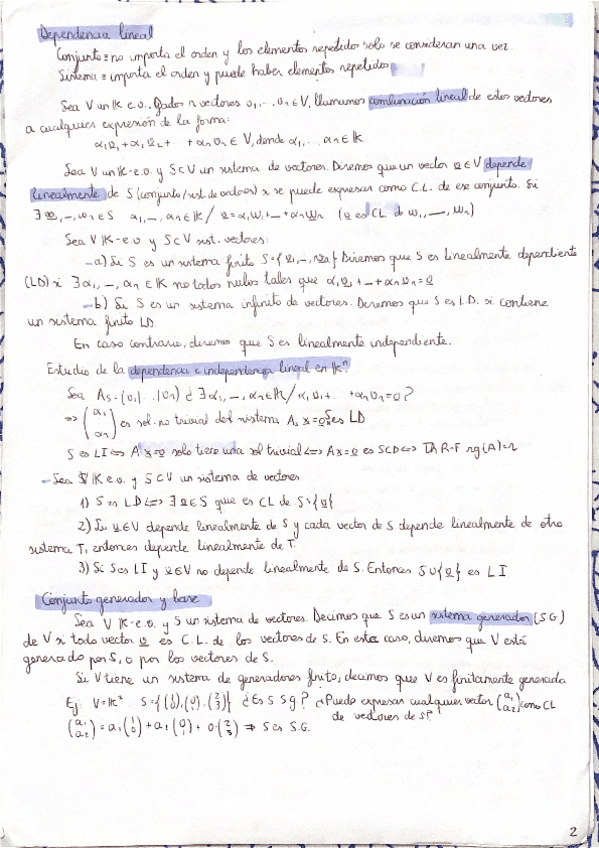 Dependencia lineal
Conjunto = no importa el orden y los elementos repetidos solo se consideran una vez.
Sistema = importa el orden y puede haber elementos repetidos
Sea V un K e.v.. Dados n vectores v₁,...vₙ ∈ V, llamamos combinación lineal de estos vectores
a cualquier expresión de la forma:
α₁v₁ + α₂v₂ + + αₙvₙ ∈ V, donde α₁,...,αₙ ∈ K
Sea V un K-e.v. y S⊂V un sistema de vectores. Diremos que un vector v ∈ V depende
linealmente de S (conjunto/sist. de vectores) si se puede expresar como C.L. de ese conjunto. Si
∃ w₁,-,wₙ ∈ S α₁,-,αₙ ∈ K / v = α₁w₁ + - + αₙwₙ (v es CL de w₁,-,wₙ)
Sea V K-e.v y S⊂V sist. vectores:
-a) Si S es un sistema finito S={v₁,-,vₙ} Diremos que S es linealmente dependiente
(LD) si ∃ α₁,-,αₙ ∈ K no todos nulos tales que α₁v₁ + - + αₙvₙ = 0
-b) Si S es un sistema infinito de vectores. Diremos que S es L.D. si contiene
un sistema finito LD.
En caso contrario, diremos que S es linealmente independiente.
Estudio de la dependencia e independencia lineal en Kⁿ
Sea As=(v₁|...|vₙ) ¿∃ α₁,-,αₙ ∈ K / α₁v₁+ +αₙvₙ=0?
⇒ (α₁ αₙ) es sol. no trivial del sistema As x=0 S es LD
S es LI ⇔ A x=0 solo tiene una sol trivial ⇔ Ax=0 es SCD ⇔ rg(A)=n
-Sea V K e.v. y S⊂V un sistema de vectores
1) S es LD ⇔ ∃ v∈S que es CL de S\{v}
2) Si v∈V depende linealmente de S y cada vector de S depende linealmente de otro
sistema T, entonces depende linealmente de T.
3) Si S es LI y v∈V no depende linealmente de S. Entonces S∪{v} es LI
Conjunto generador y base
Sea V K-e.v. y S un sistema de vectores. Decimos que S es un sistema generador (S.G.)
de V si todo vector v es C.L. de los vectores de S. En este caso, diremos que V está
generado por S, o por los vectores de S.
Si V tiene un sistema de generadores finito, decimos que V es finitamente generado
Ej: V=K² S={(1 0),(0 1),(2 3)} ¿Es S Sg? ¿Puedo expresar cualquier vector (a₁ a₂) como CL
de vectores de S?
(a₁ a₂) = a₁(1 0) + a₂(0 1) + 0·(2 3) ⇒ S es S.G.
2